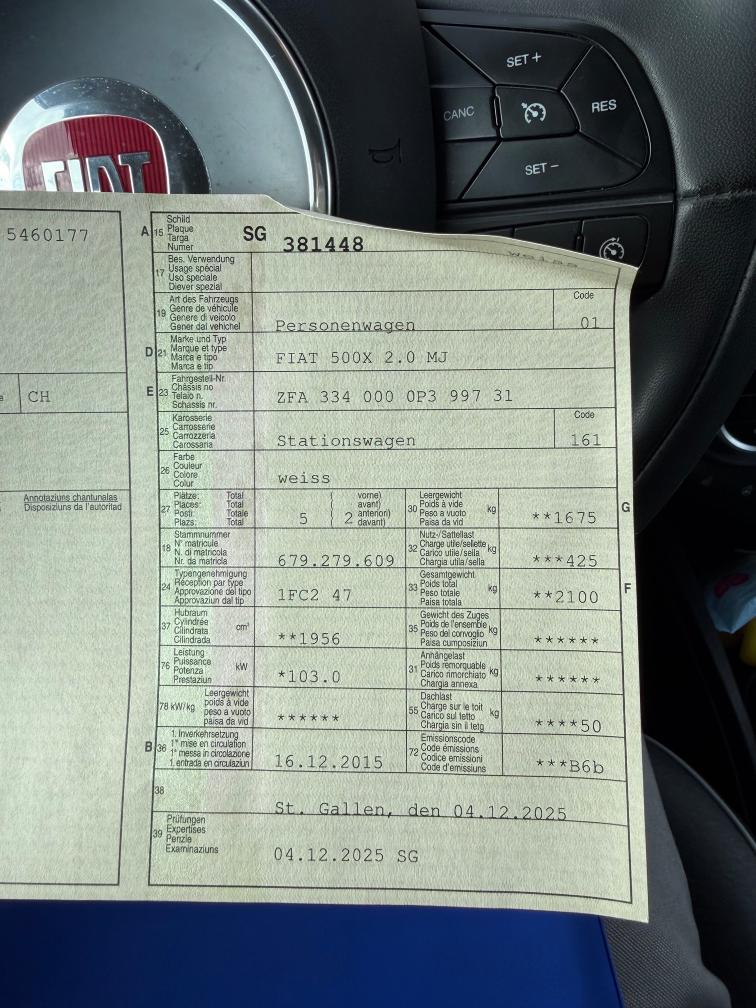 SET +
CANC
RES
SET −
FIAT
5460177
CH
Annotaziuns chantunalas
Disposiziuns da l'autoritad
A 15 Schild
Plaque
Targa
Numer
SG 381448
weiss
17 Bes. Verwendung
Usage spécial
Uso speciale
Diever spezial
19 Art des Fahrzeugs
Genre de véhicule
Genere di veicolo
Gener dal vehichel
Personenwagen
Code
01
D 21 Marke und Typ
Marque et type
Marca e tipo
Marca e tip
FIAT 500X 2.0 MJ
E 23 Fahrgestell-Nr.
Châssis no
Telaio n.
Schassis nr.
ZFA 334 000 0P3 997 31
25 Karosserie
Carrosserie
Carrozzeria
Carossaria
Stationswagen
Code
161
26 Farbe
Couleur
Colore
Colur
weiss
27 Plätze: Total
Places: Total
Posti: Totale
Plazs: Total
5
vorne)
avant)
anteriori)
davant)
2
30 Leergewicht
Poids à vide
Peso a vuoto
Paisa da vid
kg
**1675
G
18 Stammnummer
N° matricule
N. di matricola
Nr. da matricla
679.279.609
32 Nutz-/Sattellast
Charge utile/sellette
Carico utile/sella
Chargia utila/sella
kg
***425
24 Typengenehmigung
Réception par type
Approvazione del tipo
Approvaziun dal tip
1FC2 47
33 Gesamtgewicht
Poids total
Peso totale
Paisa totala
kg
**2100
F
37 Hubraum
Cylindrée
Cilindrata
Cilindrada
cm³
**1956
35 Gewicht des Zuges
Poids de l'ensemble
Peso del convoglio
Paisa cumposiziun
kg
******
76 Leistung
Puissance
Potenza
Prestaziun
kW
*103.0
31 Anhängelast
Poids remorquable
Carico rimorchiato
Chargia annexa
kg
******
78 kW/kg
Leergewicht
poids à vide
peso a vuoto
paisa da vid
******
55 Dachlast
Charge sur le toit
Carico sul tetto
Chargia sin il tetg
kg
****50
B 36 1. Inverkehrsetzung
1re mise en circulation
1a messa in circolazione
1. entrada en circulaziun
16.12.2015
72 Emissionscode
Code émissions
Codice emissioni
Code d'emissiuns
***B6b
38
St. Gallen, den 04.12.2025
39 Prüfungen
Expertises
Perizie
Examinaziuns
04.12.2025 SG